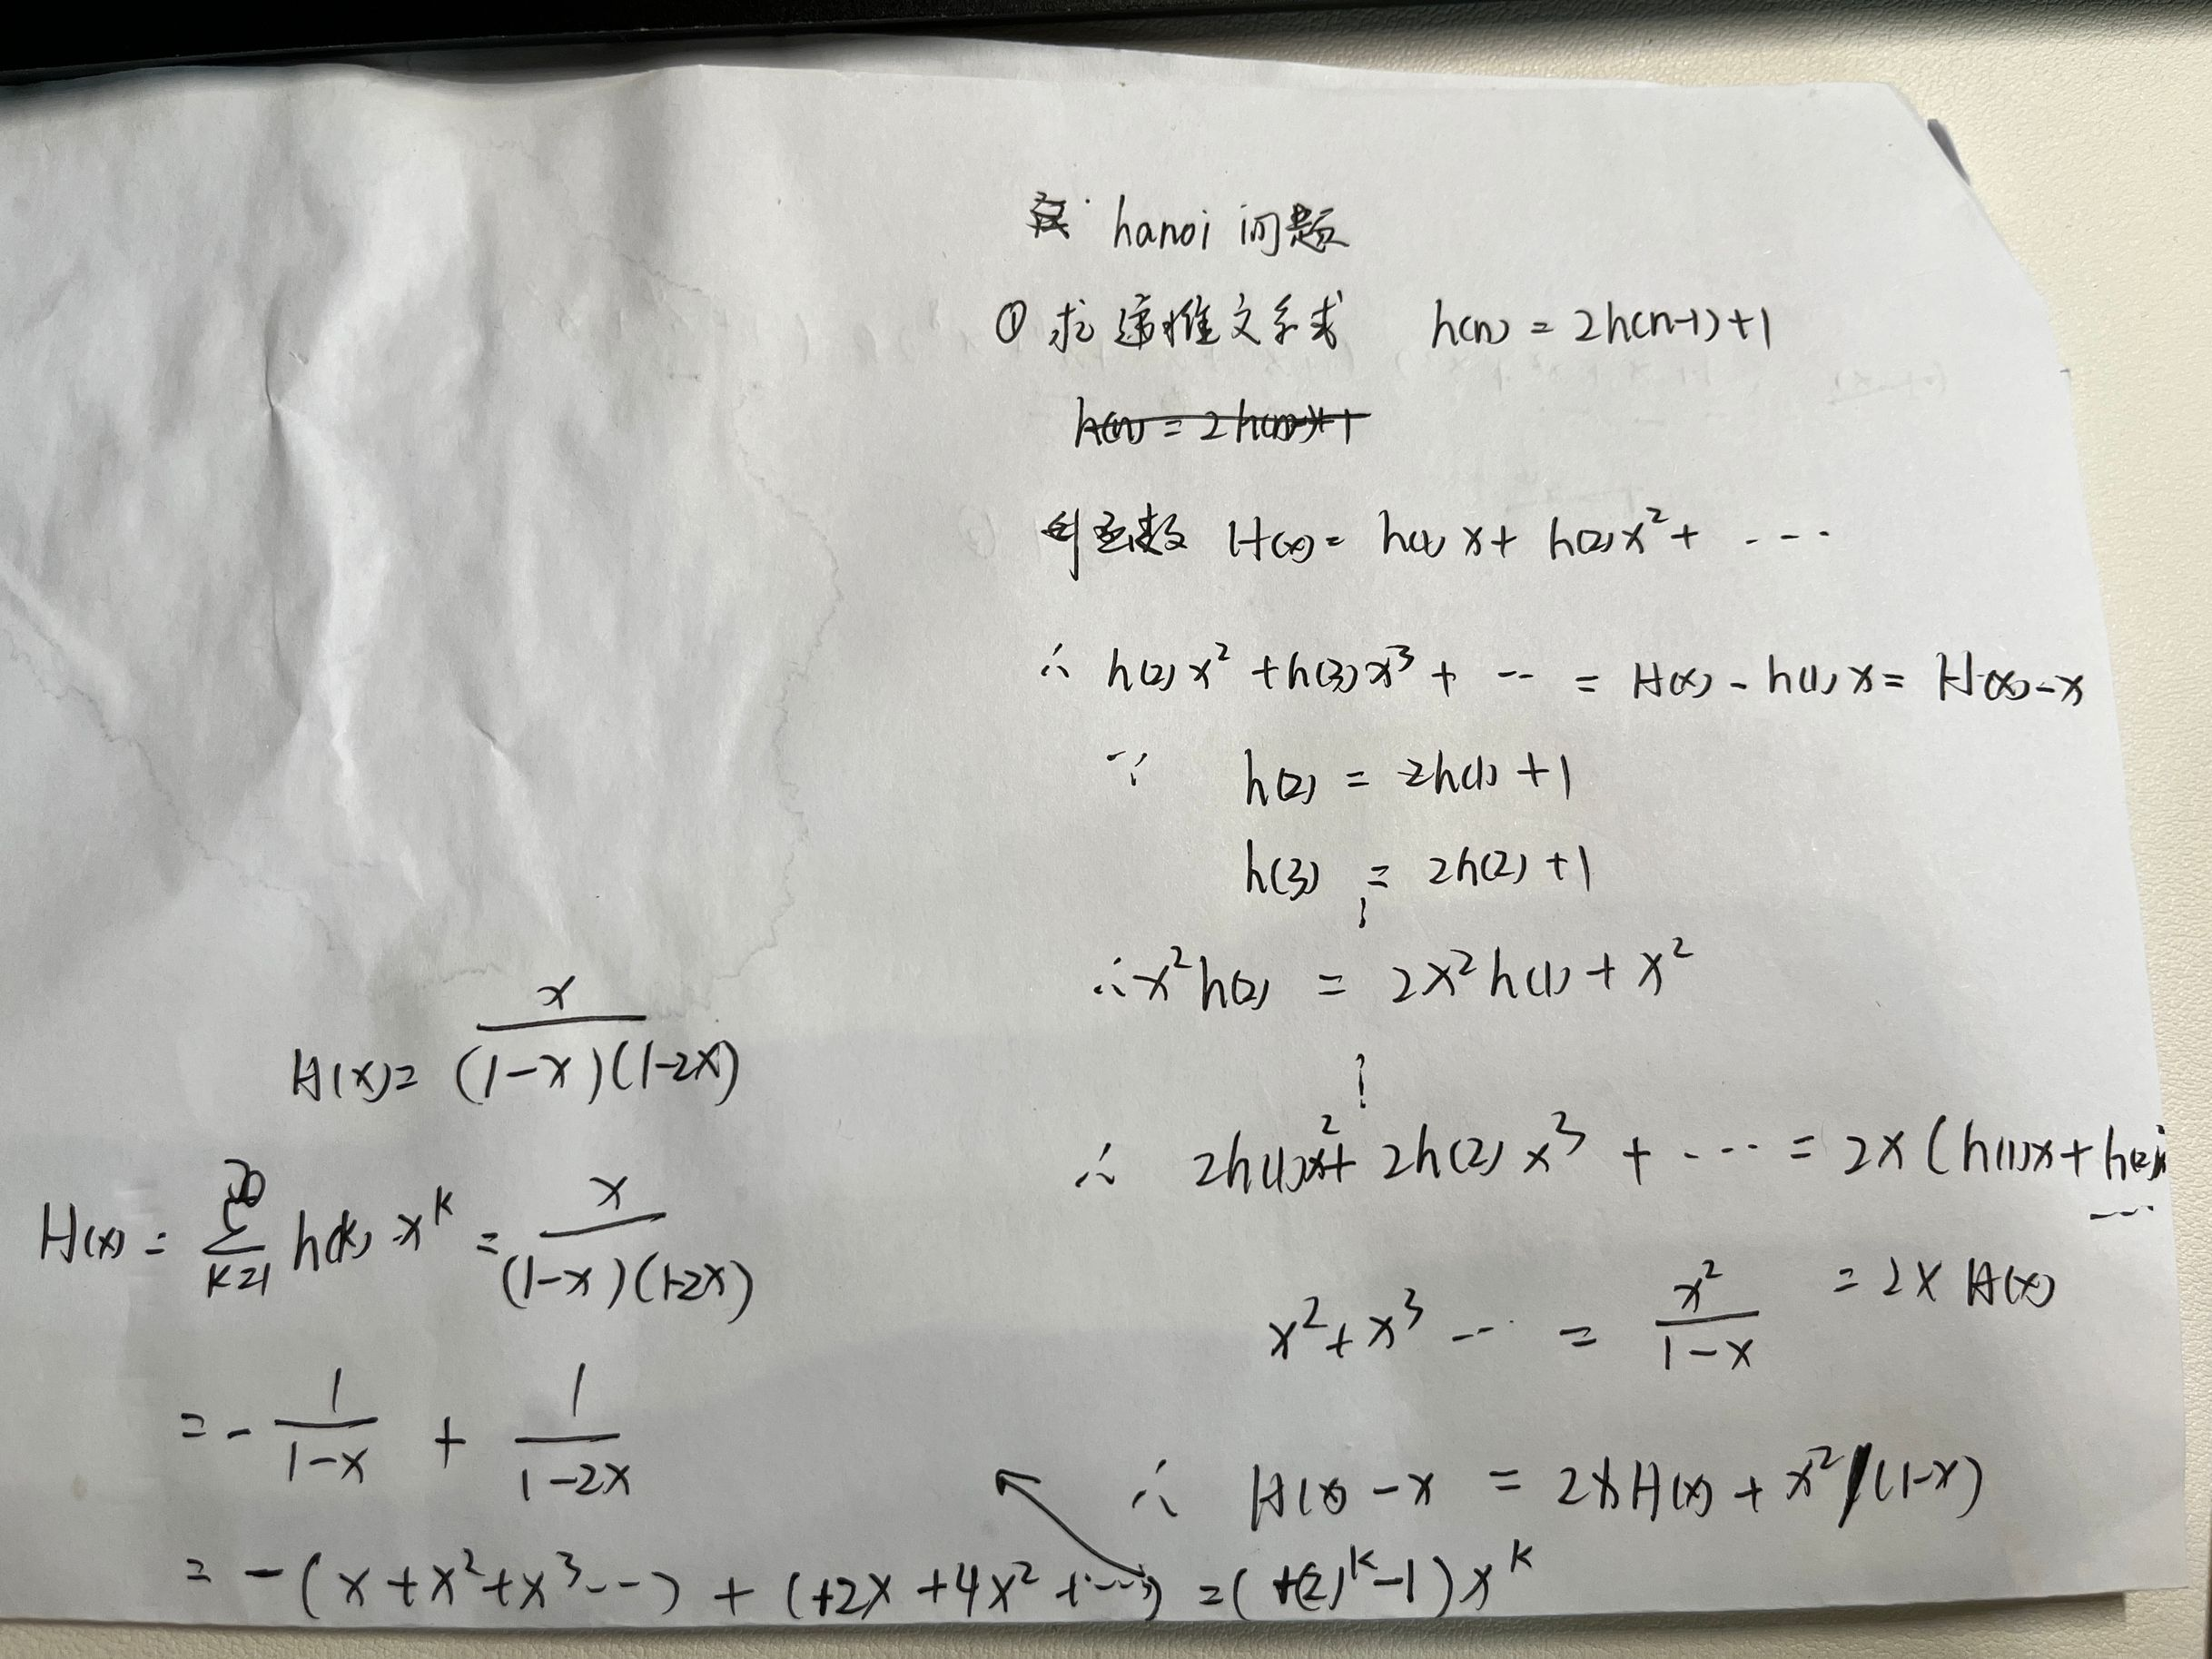 hanoi 问题
① 求递推关系式 h(n) = 2h(n-1)+1
h(n) = 2h(n-1)+1
母函数 H(x) = h(1)x + h(2)x² + ----
∴ h(2)x² + h(3)x³ + -- = H(x) - h(1)x = H(x)-x
∵ h(2) = 2h(1) + 1
h(3) = 2h(2) + 1
∴ x²h(2) = 2x²h(1) + x²
∴ 2h(1)x² + 2h(2)x³ + ---- = 2x(h(1)x + h(2)
----
= 2x H(x)
x² + x³ --- = x²/(1-x)
∴ H(x) - x = 2xH(x) + x²/(1-x)
H(x) = x/((1-x)(1-2x))
H(x) = ∑_{k=1}^{∞} h(k)·x^k = x/((1-x)(1-2x))
= - 1/(1-x) + 1/(1-2x)
= -(x+x²+x³---) + (+2x+4x²+----) = (+(2)^k-1)x^k